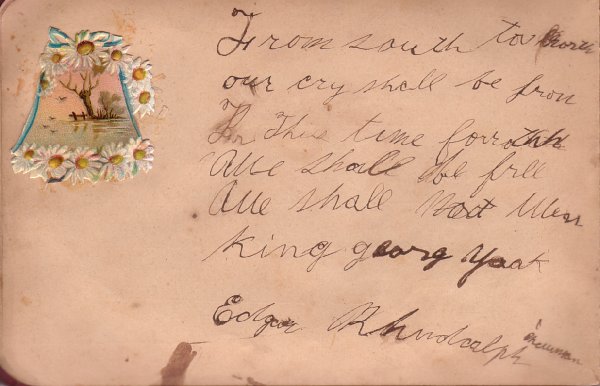 From south to north
our cry shall be from
This time forrath
We shall be free
We shall Not Wear
king georg Yoak
Edgar Rhudolph